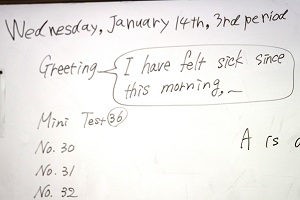 Wednesday, January 14th, 3rd period
Greeting
I have felt sick since
this morning.~
Mini Test 36
No. 30
No. 31
No. 32
A is